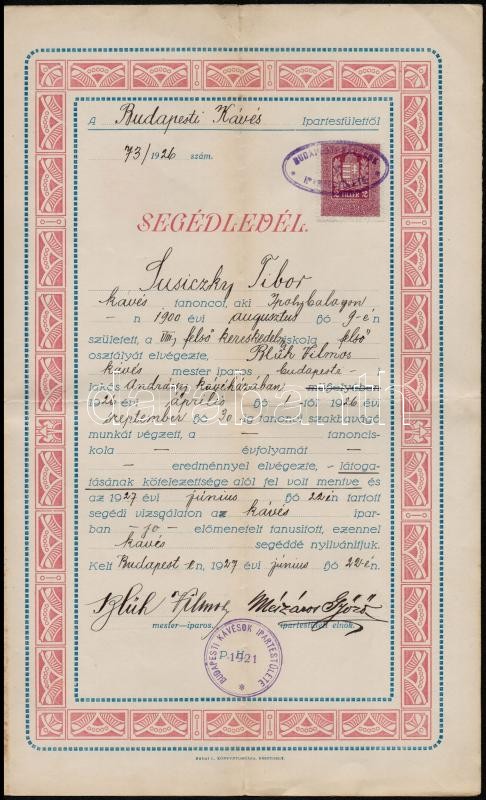 A Budapesti Kávés Ipartestülettől
73/1926 szám.
BUDAPESTI
FILLÉR
SEGÉDLEVÉL.
Susiczky Tibor
kávés tanoncot, aki Ipolybalogon
-n 1900 évi augusztus hó 9-é-n
született, a VIII, felső kereskedelmi iskola felső
osztályát elvégezte, Blüh Vilmos
kávés mester iparos budapeste
lakos Andrássy kávéházában műhelyében
1925 évi április hó 1-től 1926 évi
szeptember hó 30 ig tanonci szakbavágó
munkát végzett, a — tanoncis-
kola — évfolyamát —
— eredménnyel elvégezte, - látoga-
tásának kötelezettsége alól fel volt mentve és
az 1927 évi június hó 22-én tartott
segédi vizsgálaton az kávés ipar-
ban - jó - előmenetelt tanusított, ezennel
kávés segéddé nyilvánítjuk.
Kelt Budapest en, 1927 évi június hó 22-én.
Blüh Vilmos Mészáros Győző
mester-iparos. ipartestületi elnök.
P. H.
1421
BUDAPESTI KÁVÉSOK IPARTESTÜLETE